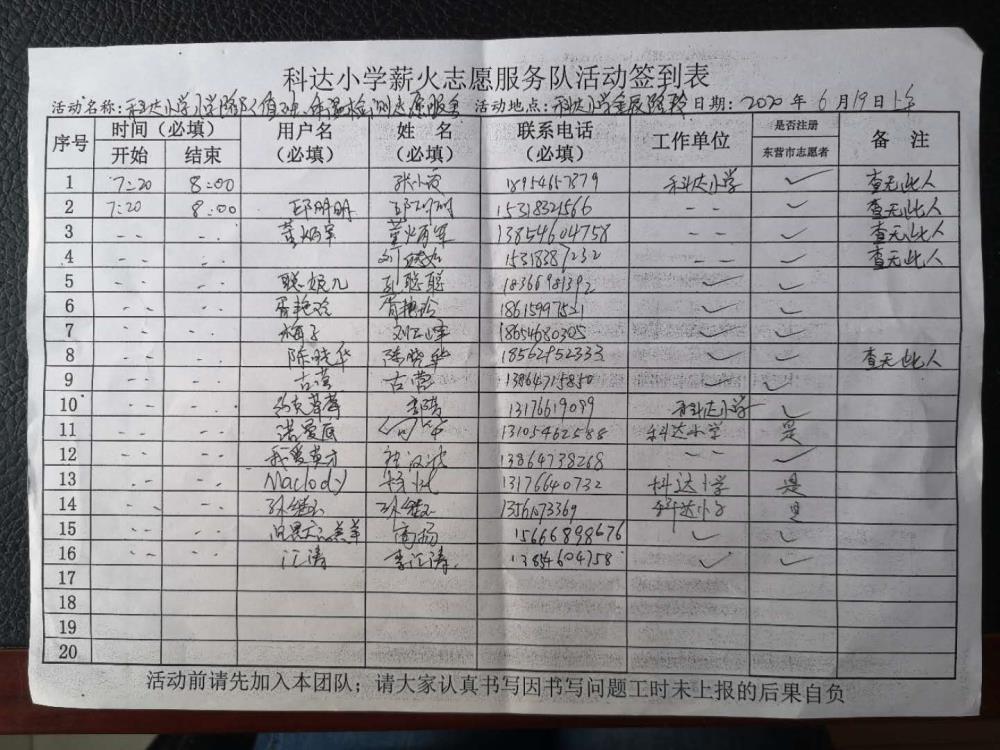 科达小学薪火志愿服务队活动签到表
活动名称：科达小学小学阶段值班、体温检测志愿服务 活动地点：科达小学金辰路 日期：2020 年 6 月 19 日 上午
序号 时间（必填） 用户名（必填） 姓 名（必填） 联系电话（必填） 工作单位 是否注册东营市志愿者 备 注
开始 结束
1 7:20 8:00 18954657879 科达小学 ✓ 查无此人
2 7:20 8:00 邱明明 邱明明 15318321566 -- ✓ 查无此人
3 -- -- 董炳军 董炳军 13854604758 -- ✓ 查无此人
4 -- -- 15318387232 -- ✓ 查无此人
5 -- -- 聪妮儿 孔聪聪 18366981392 ✓ ✓
6 -- -- 胥艳玲 胥艳玲 18615997521 ✓ ✓
7 -- -- 梅子 18654680305 ✓ ✓
8 -- -- 陈晓华 陈晓华 18562952333 ✓ ✓ 查无此人
9 -- -- 古营 古营 13864715850 ✓ ✓
10 -- -- 李 13176619099 科达小学 ✓
11 -- -- 诺爱底 13105462588 科达小学 是
12 -- -- 我爱英才 13864738268 -- ✓
13 -- -- Maclody 13176640732 科达小学 是
14 -- -- 孙继 孙继 13561073369 科达小学 是
15 -- -- 高扬 15666898676 ✓ ✓
16 -- -- 江涛 李江涛 13854604758 ✓ ✓
17
18
19
20
活动前请先加入本团队；请大家认真书写因书写问题工时未上报的后果自负